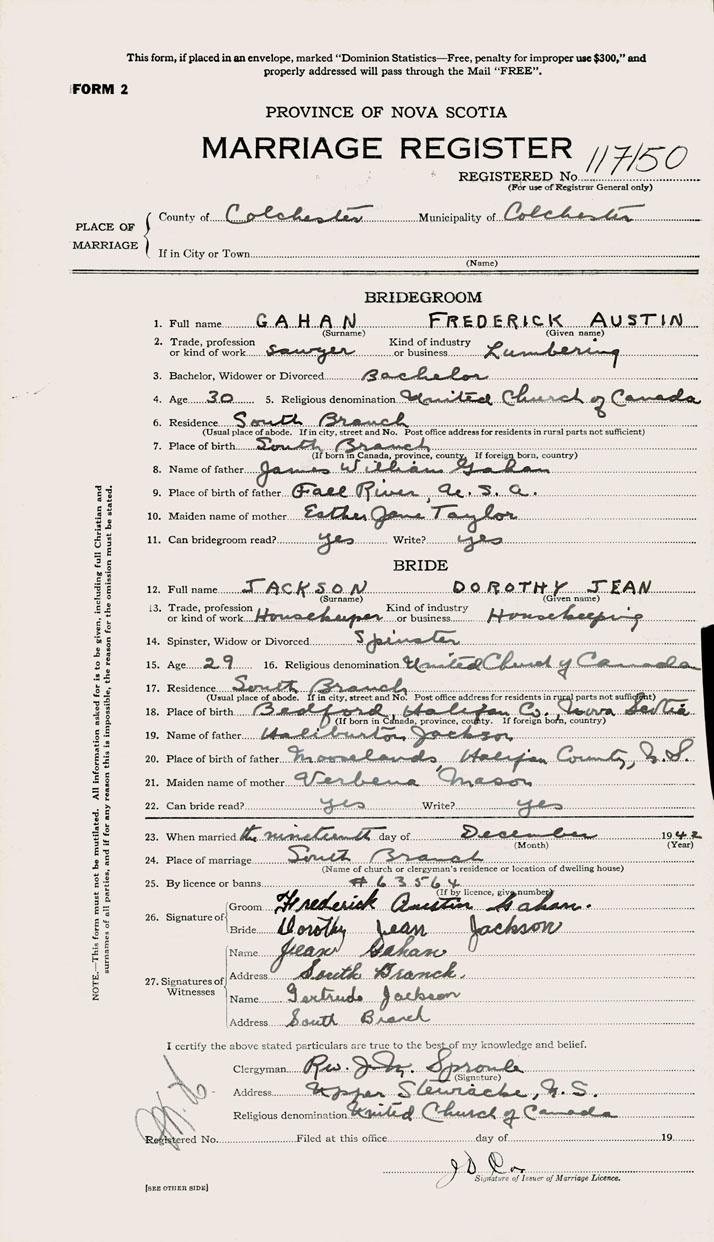 This form, if placed in an envelope, marked "Dominion Statistics—Free, penalty for improper use $300," and
properly addressed will pass through the Mail "FREE".
FORM 2
PROVINCE OF NOVA SCOTIA
MARRIAGE REGISTER
117150
REGISTERED No.
(For use of Registrar General only)
PLACE OF MARRIAGE
County of Colchester Municipality of Colchester
If in City or Town
(Name)
BRIDEGROOM
1. Full name GAHAN FREDERICK AUSTIN
(Surname) (Given name)
2. Trade, profession or kind of work sawyer Kind of industry or business Lumbering
3. Bachelor, Widower or Divorced Bachelor
4. Age 30 5. Religious denomination United Church of Canada
6. Residence South Branch
(Usual place of abode. If in city, street and No. Post office address for residents in rural parts not sufficient)
7. Place of birth South Branch
(If born in Canada, province, county. If foreign born, country)
8. Name of father James William Gahan
9. Place of birth of father Fall River, U.S.A.
10. Maiden name of mother Esther Jane Taylor
11. Can bridegroom read? yes Write? yes
BRIDE
12. Full name JACKSON DOROTHY JEAN
(Surname) (Given name)
13. Trade, profession or kind of work Housekeeper Kind of industry or business Housekeeping
14. Spinster, Widow or Divorced Spinster
15. Age 29 16. Religious denomination United Church of Canada
17. Residence South Branch
(Usual place of abode. If in city, street and No. Post office address for residents in rural parts not sufficient)
18. Place of birth Bedford, Halifax Co. Nova Scotia
(If born in Canada, province, county. If foreign born, country)
19. Name of father Haliburton Jackson
20. Place of birth of father Mooselands Halifax County, N.S.
21. Maiden name of mother Verbena Mason
22. Can bride read? yes Write? yes
23. When married the nineteenth day of December 1942
(Month) (Year)
24. Place of marriage South Branch
(Name of church or clergyman's residence or location of dwelling house)
25. By licence or banns #63564
(If by licence, give number)
26. Signature of
Groom Frederick Austin Gahan.
Bride Dorothy Jean Jackson
27. Signatures of Witnesses
Name Jean Gahan
Address South Branch.
Name Gertrude Jackson
Address South Branch
I certify the above stated particulars are true to the best of my knowledge and belief.
Clergyman Rev. J. M. Sproule
(Signature)
Address Upper Stewiacke, N.S.
Religious denomination United Church of Canada
Registered No. Filed at this office day of 19
Signature of Issuer of Marriage Licence.
[SEE OTHER SIDE]
NOTE.—This form must not be mutilated. All information asked for is to be given, including full Christian and
surnames of all parties, and if for any reason this is impossible, the reason for the omission must be stated.